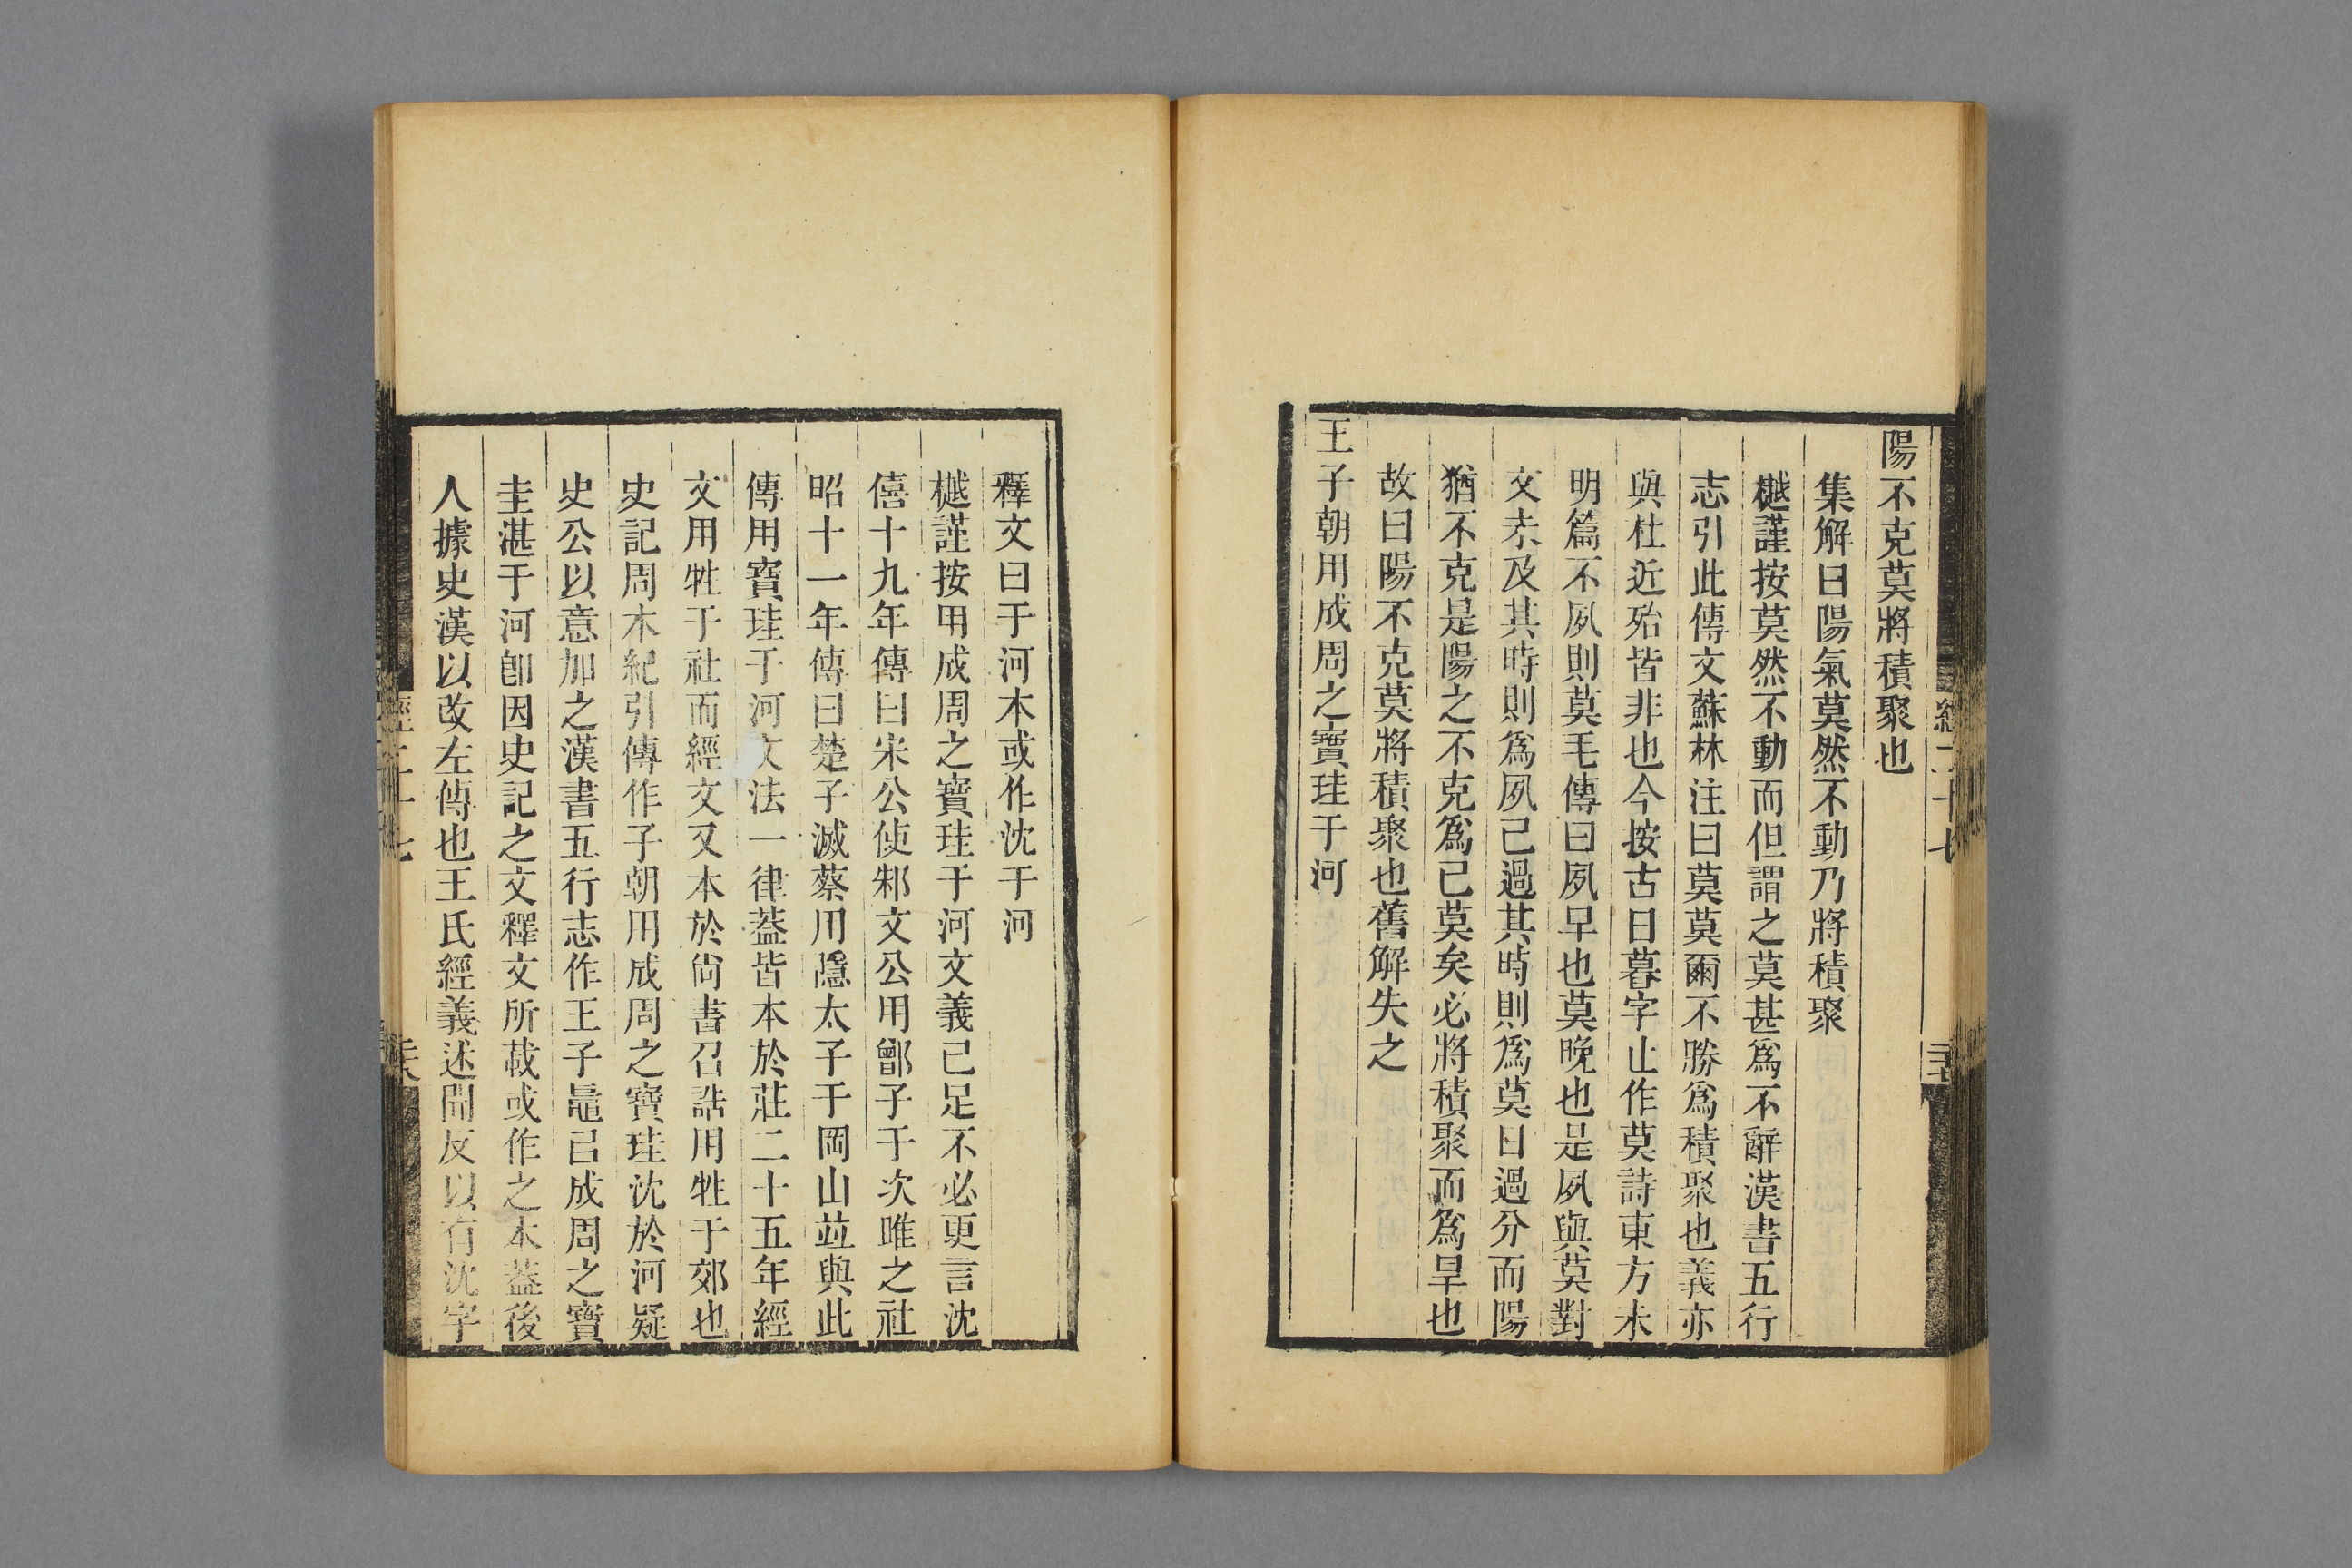 陽不克莫將積聚也
集解曰陽氣莫然不動乃將積聚
樾謹按莫然不動而但謂之莫甚爲不辭漢書五行
志引此傳文蘇林注曰莫莫爾不勝爲積聚也義亦
與杜近殆皆非也今按古日暮字止作莫詩東方未
明篇不夙則莫毛傳曰夙早也莫晚也是夙與莫對
文未及其時則爲夙已過其時則爲莫日過分而陽
猶不克是陽之不克爲已莫矣必將積聚而爲旱也
故曰陽不克莫將積聚也舊解失之
王子朝用成周之寶珪于河
釋文曰于河本或作沈于河
樾謹按用成周之寶珪于河文義已足不必更言沈
僖十九年傳曰宋公使邾文公用鄫子于次睢之社
昭十一年傳曰楚子滅蔡用隱太子于岡山竝與此
傳用寶珪于河文法一律葢皆本於莊二十五年經
文用牲于社而經文又本於尙書召誥用牲于郊也
史記周本紀引傳作子朝用成周之寶珪沈於河疑
史公以意加之漢書五行志作王子鼂㠯成周之寶
圭湛于河卽因史記之文釋文所載或作之本葢後
人據史漢以改左傳也王氏經義述聞反以有沈字
經二十七
二十八